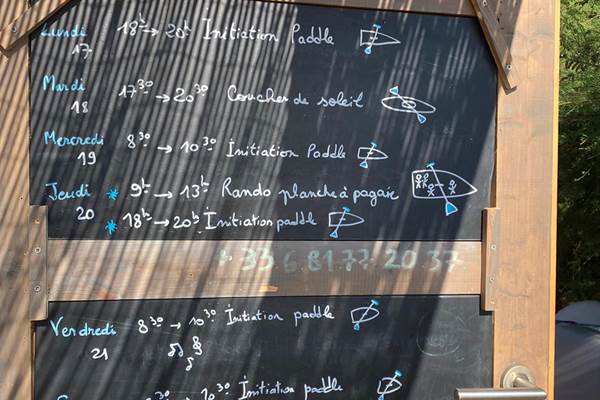 Lundi 18h → 20h Initiation Paddle
17
Mardi 17 30 → 20 30 Coucher de soleil
18
Mercredi 8 30 → 10 30 Initiation Paddle
19
Jeudi * 9h → 13h Rando planche à pagaie
20 * 18h → 20h Initiation paddle
+ 33 6 81 77 20 37
Vendredi 8 30 → 10 30 Initiation paddle
21
30 Initiation paddle